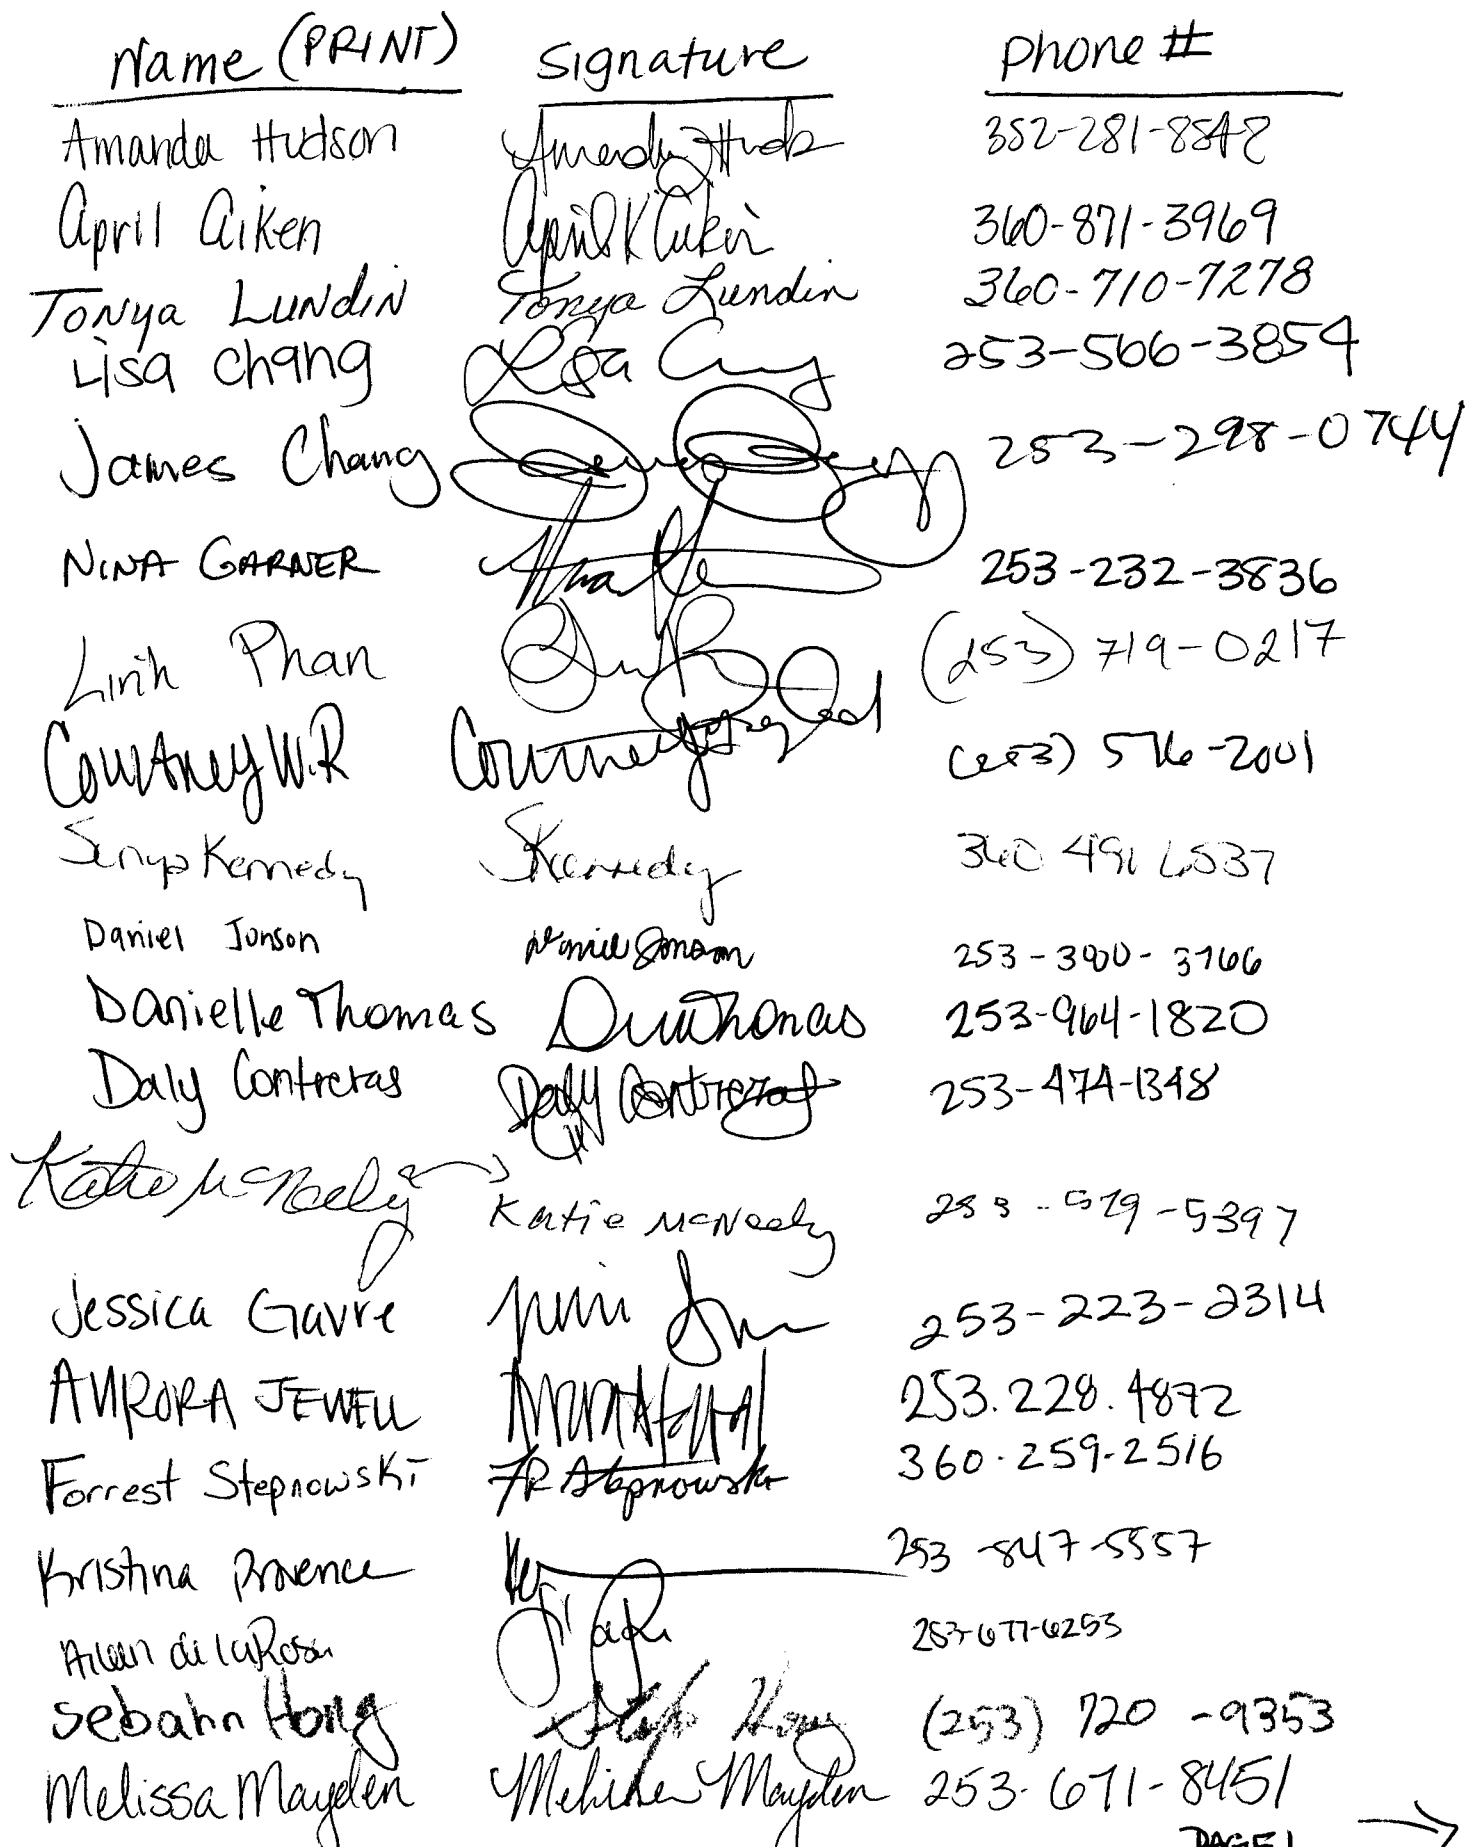 Name (PRINT) Signature Phone #
Amanda Hudson Amanda Huds 352-281-8848
April Aiken April K Aiken 360-871-3969
Tonya Lundin Tonya Lundin 360-710-7278
Lisa Chang Lisa Chang 253-566-3854
James Chang 253-298-0744
NINA GARNER 253-232-3836
Linh Phan (253) 719-0217
Courtney W.R Courtney (253) 576-2001
Kennedy SKennedy 360 491 6537
Daniel Jonson Daniel Jonson 253-300-3766
Danielle Thomas Thomas 253-964-1820
Daly Contreras Daly Contreras 253-474-1348
Katie McNeely Katie McNeely 253-579-5397
Jessica Gavre 253-223-2314
AURORA JEWELL 253.228.4872
Forrest Stepnowski FR Stepnowski 360-259-2516
Kristina Provence 253-847-5557
Aileen de la Rosa 253-677-6253
Sebahn Hong Hong (253) 720-9353
Melissa Mayden Melissa Mayden 253-671-8451
PAGE 1